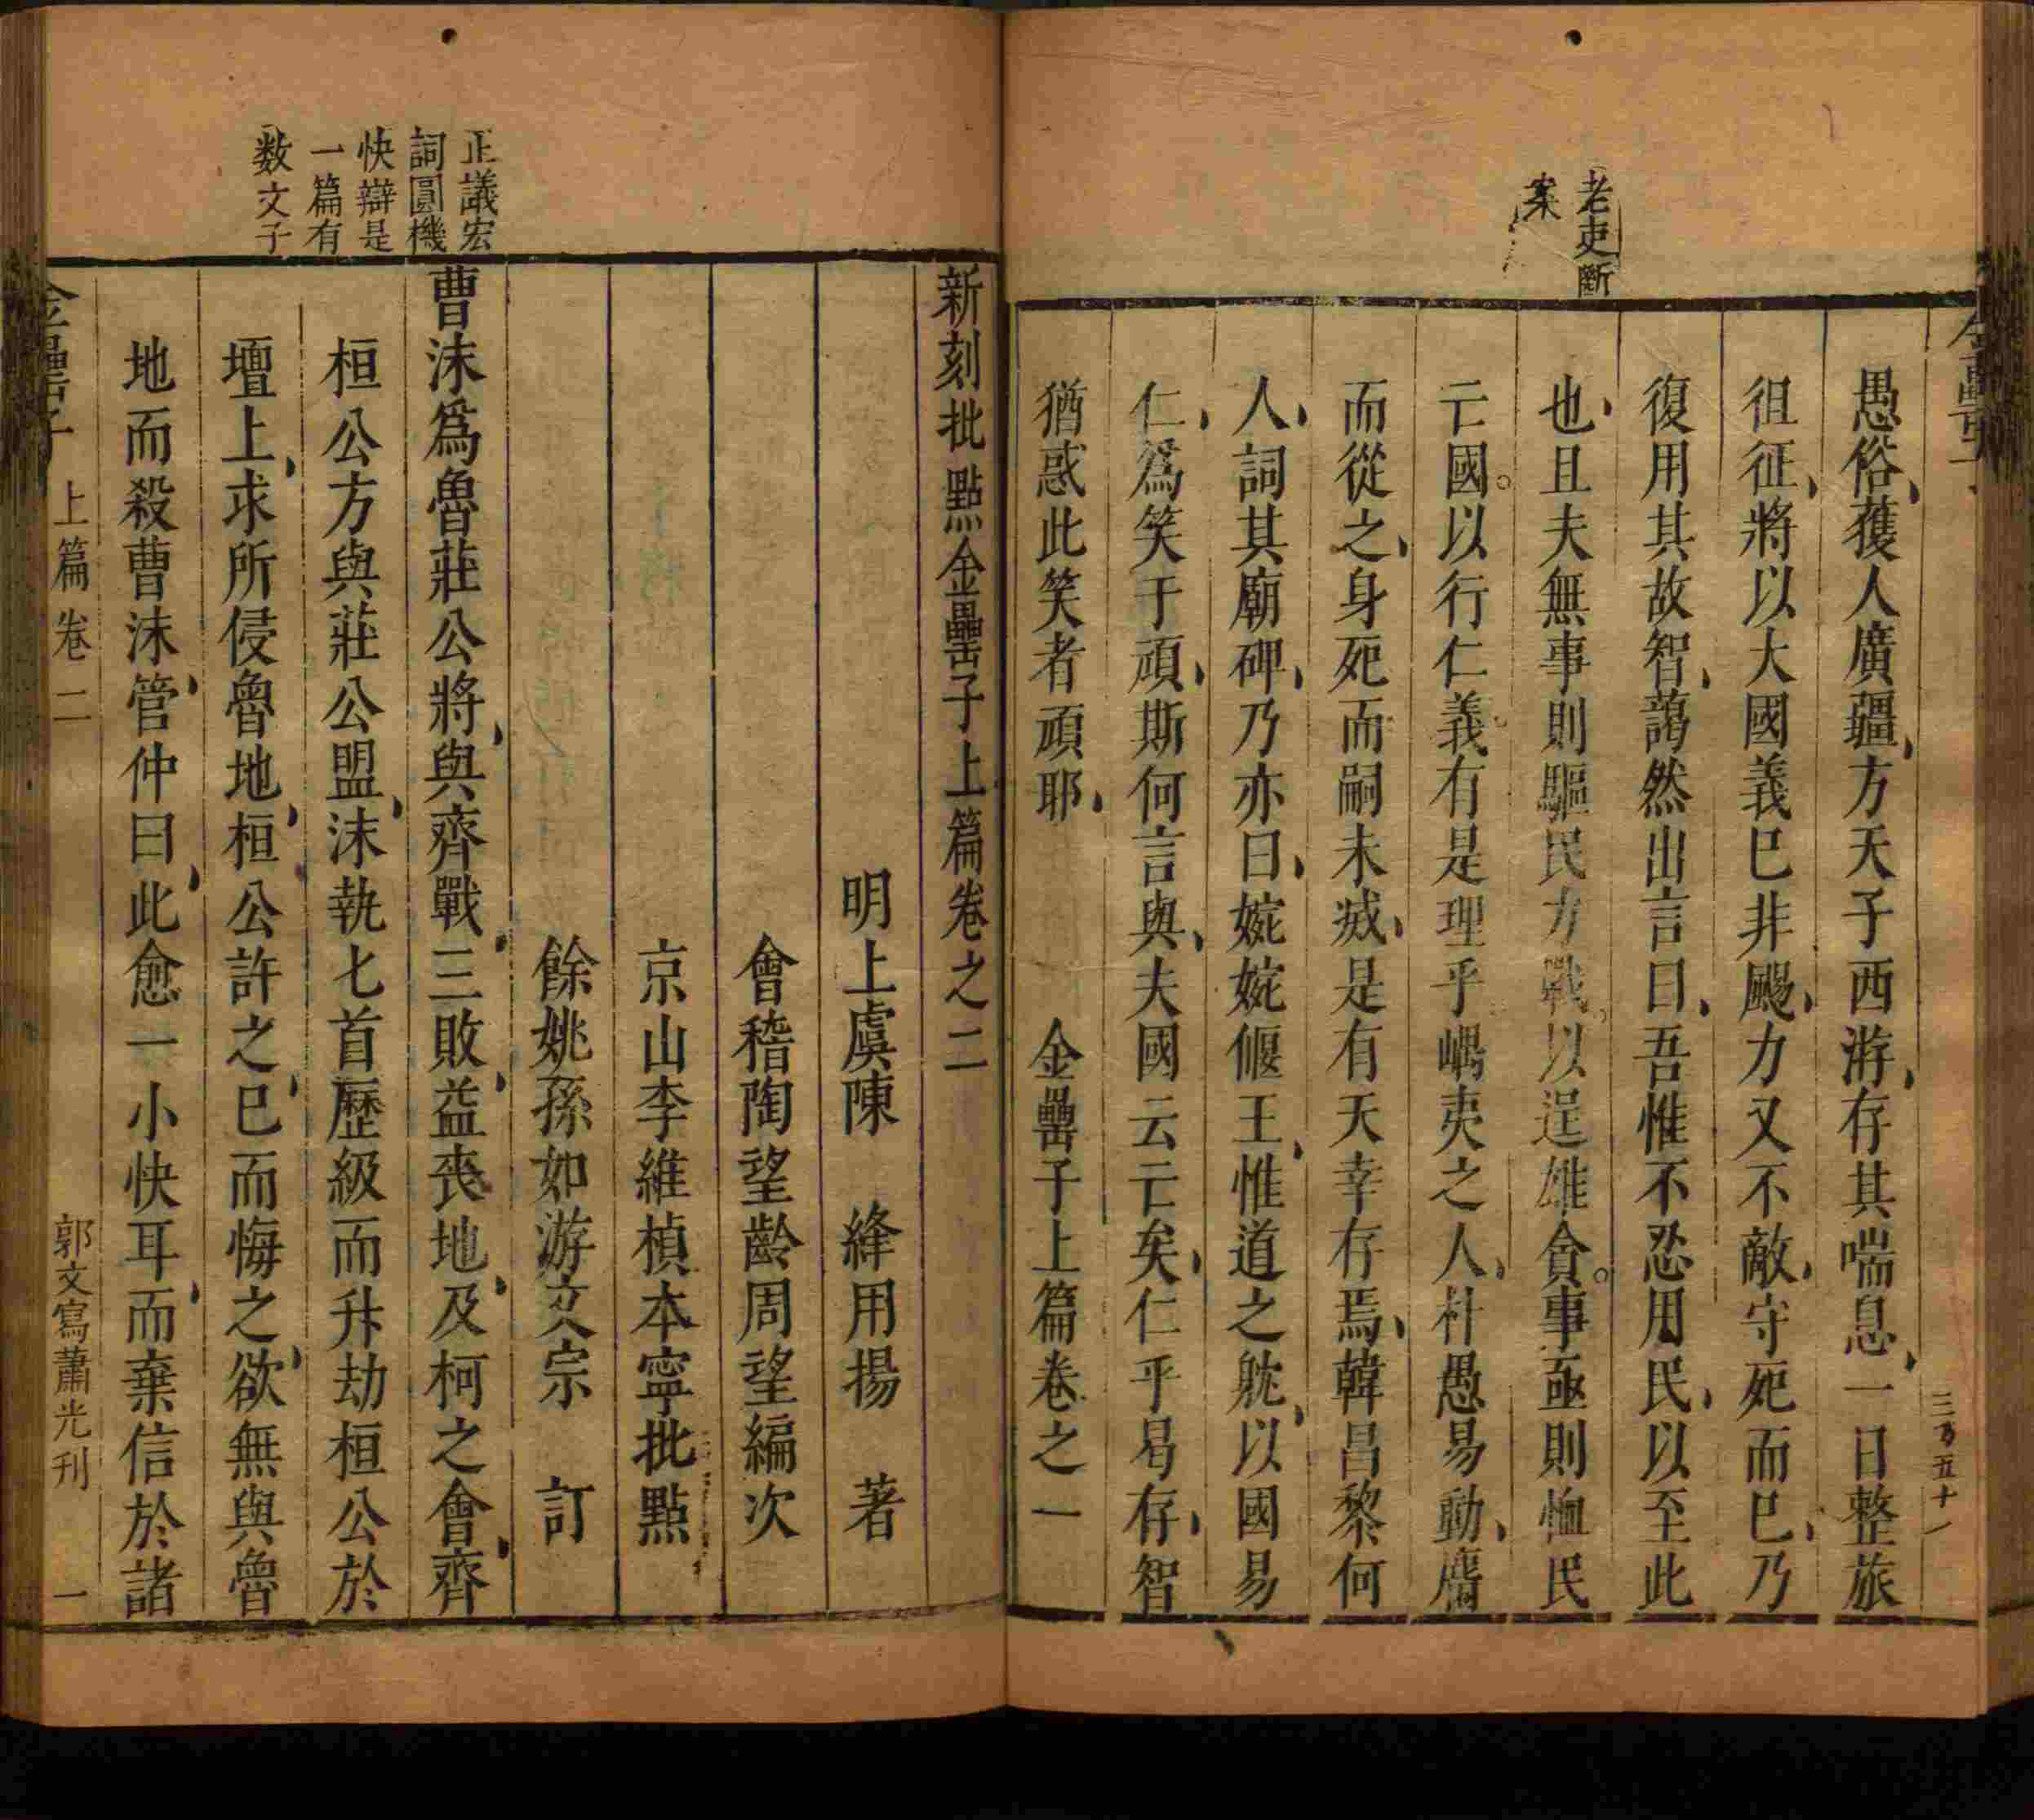 老吏斷
案
愚俗獲人廣疆方天子西游存其喘息一日整旅
徂征將以大國義巳非颺力又不敵守死而巳乃
復用其故智藹然出言曰吾惟不忍用民以至此
也且夫無事則驅民力戰以逞雄貪事亟則恤民
亡國以行仁義有是理乎嵎夷之人朴愚易動靡
而從之身死而嗣未烕是有天幸存焉韓昌黎何
人詞其廟碑乃亦曰婉婉偃王惟道之躭以國易
仁爲笑于頑斯何言與夫國云亡矣仁乎曷存智
猶惑此笑者頑耶
金罍子上篇卷之一
正議宏
詞圓機
快辯是
一篇有
数文子
新刻批點金罍子上篇卷之二
明上虞陳　絳用揚　著
會稽陶望齡周望編次
京山李維楨本寧批點
餘姚孫如游文宗　訂
曹沫爲魯莊公將與齊戰三敗益喪地及柯之會齊
桓公方與莊公盟沫執匕首歷級而升劫桓公於
壇上求所侵魯地桓公許之巳而悔之欲無與魯
地而殺曹沫管仲曰此愈一小快耳而棄信於諸
金罍子　上篇卷二　郭文寫蕭光刊　一